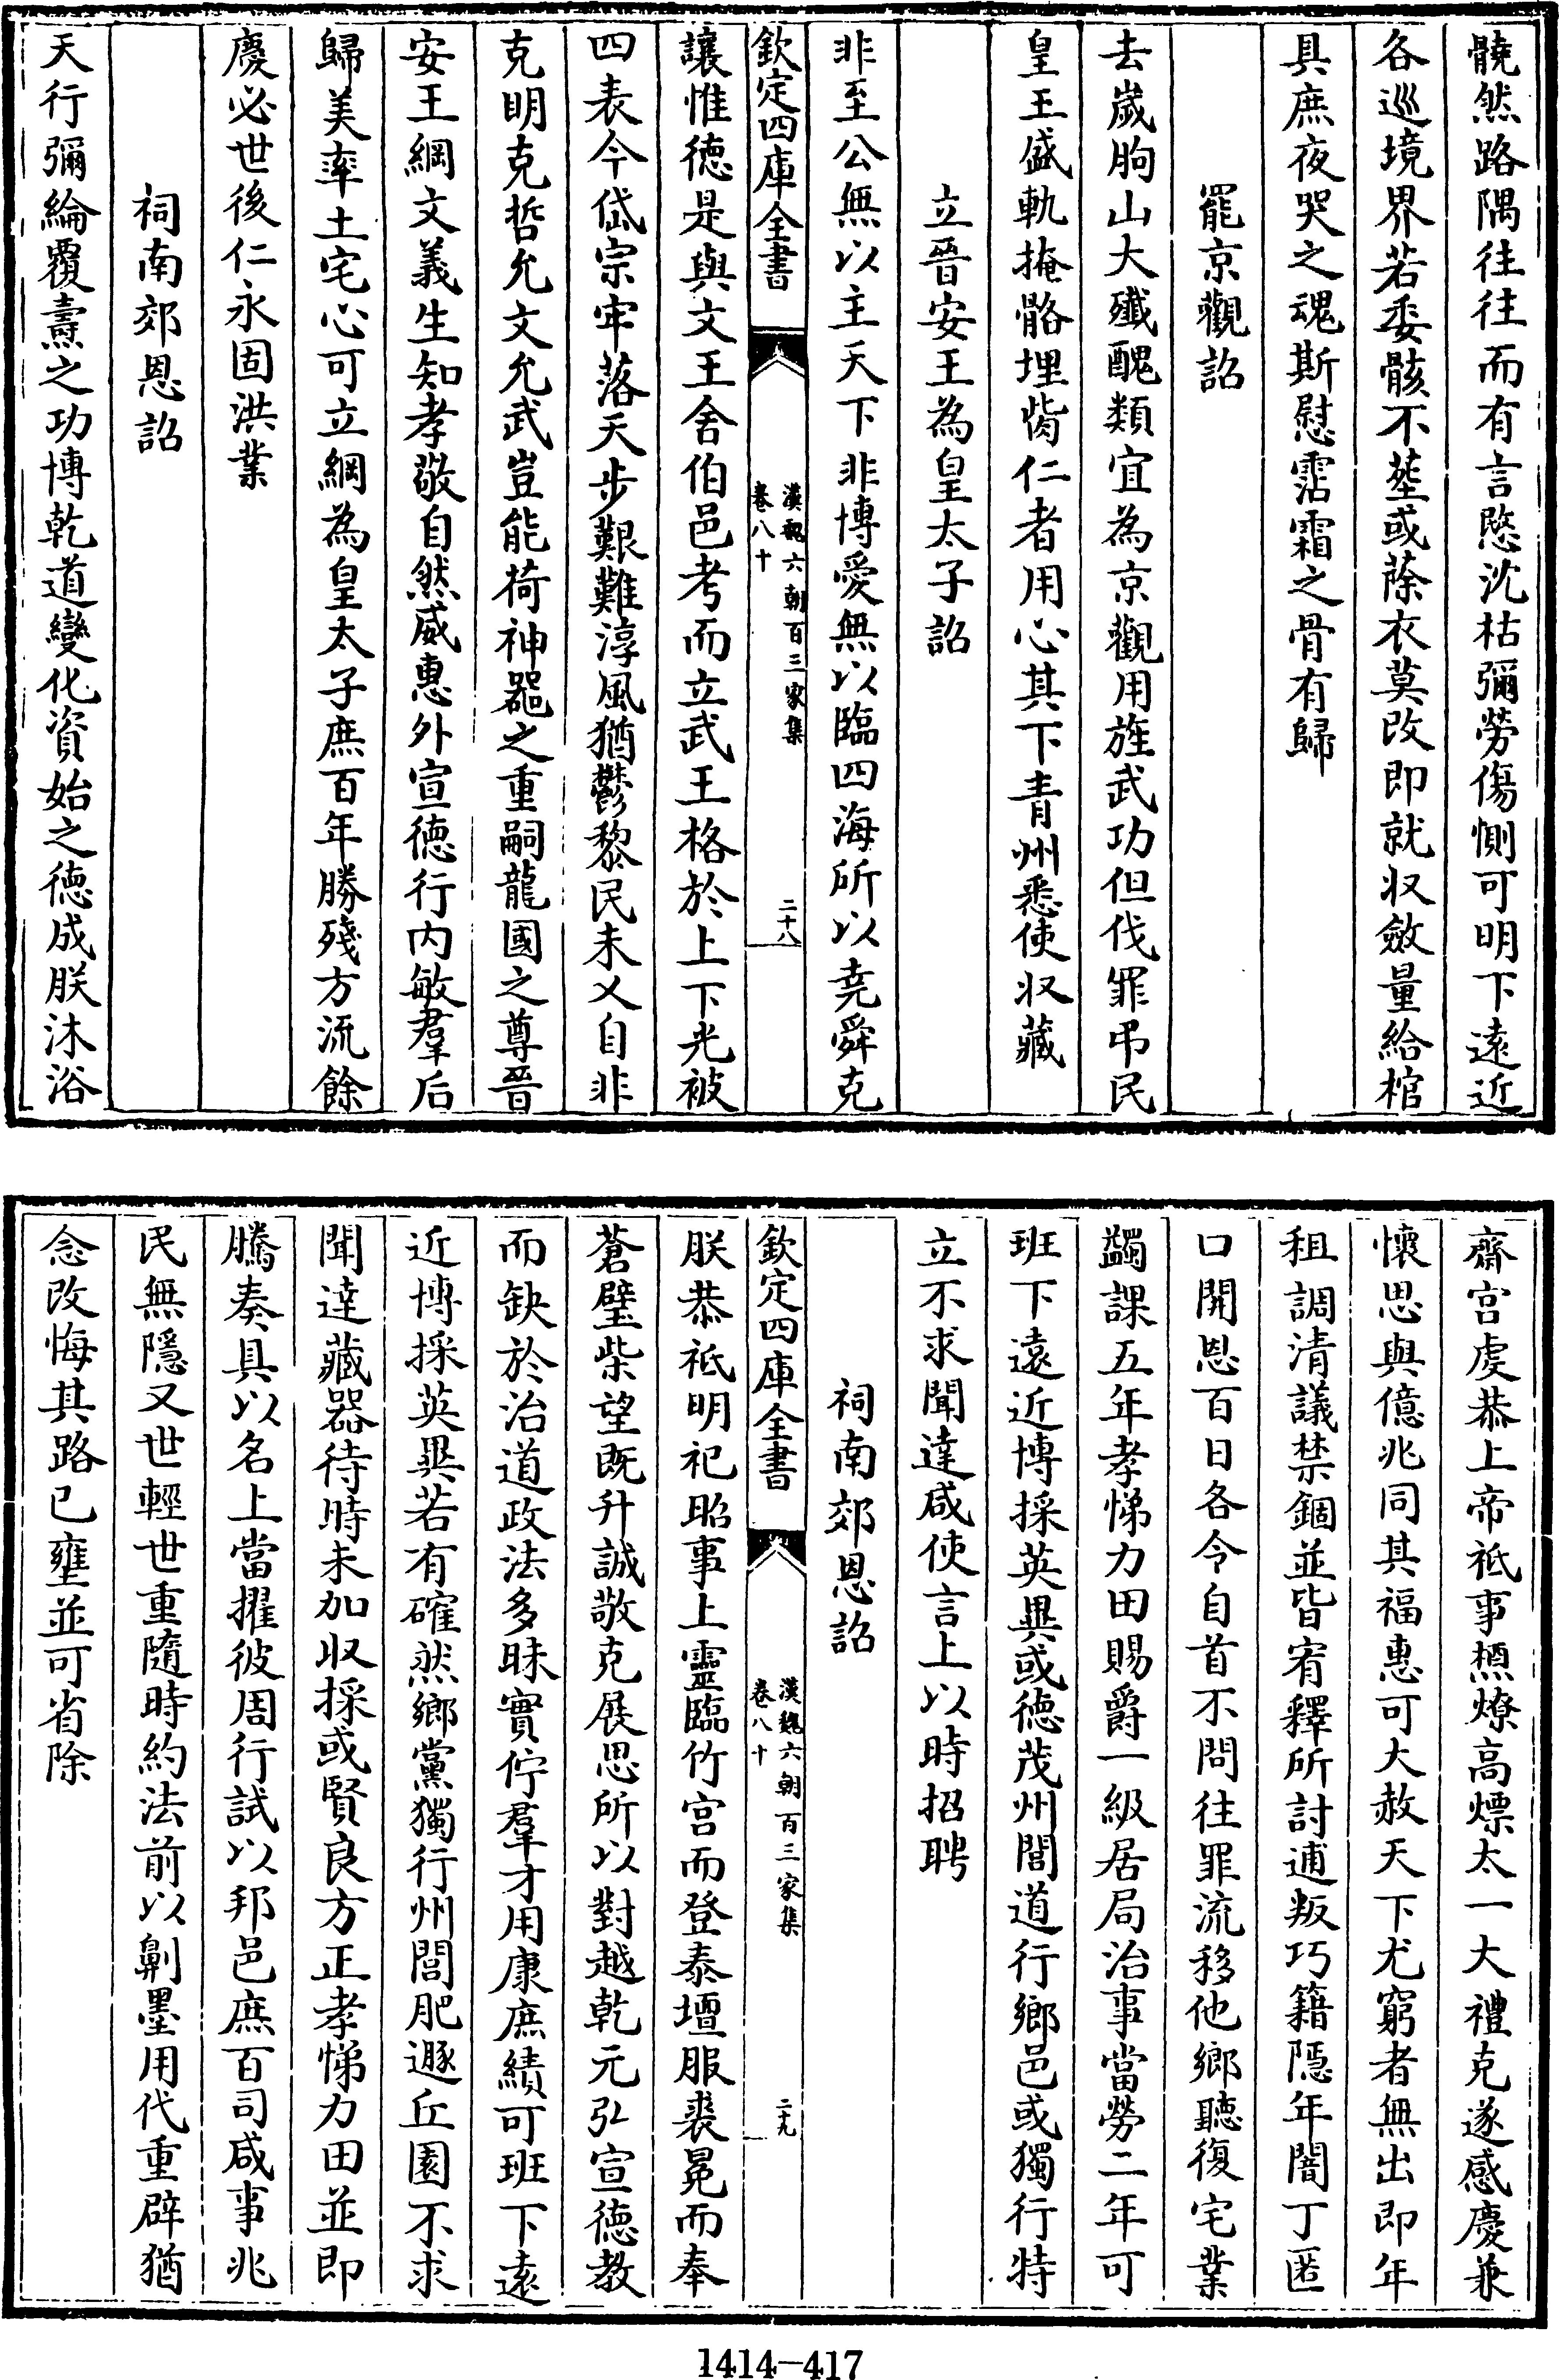 髐然路隅往往而有言愍沈枯彌勞傷惻可明下遠近
各巡境界若委骸不塟或蒢衣莫改即就収斂量給棺
具庶夜哭之魂斯慰霑霜之骨有歸
罷京觀詔
去歲朐山大殲醜類宜為京觀用旌武功但伐罪弔民
皇王盛軌掩骼埋胔仁者用心其下青州悉使収藏
立晉安王為皇太子詔
非至公無以主天下非博愛無以臨四海所以堯舜克
欽定四庫全書
漢魏六朝百三家集
卷八十
二十八
讓惟德是與文王舍伯邑考而立武王格於上下光被
四表今岱宗牢落天步艱難淳風猶鬱黎民未乂自非
克明克哲允文允武豈能荷神器之重嗣龍國之尊晉
安王綱文義生知孝敬自然威惠外宣德行内敏羣后
歸美率土宅心可立綱為皇太子庶百年勝殘方流餘
慶必世後仁永固洪業
祠南郊恩詔
天行彌綸覆燾之功博乾道變化資始之德成朕沐浴
齋宫虔恭上帝祗事槱燎高熛太一大禮克遂感慶兼
懷思與億兆同其福惠可大赦天下尤窮者無出即年
租調清議禁錮並皆宥釋所討逋叛巧籍隱年闇丁匿
口開恩百日各令自首不問往罪流移他鄉聽復宅業
蠲課五年孝悌力田賜爵一級居局治事當勞二年可
班下遠近博採英異或德茂州閭道行鄉邑或獨行特
立不求聞達咸使言上以時招聘
祠南郊恩詔
欽定四庫全書
漢魏六朝百三家集
卷八十
二十九
朕恭祗明祀昭事上靈臨竹宫而登泰壇服裘冕而奉
蒼璧柴望既升誠敬克展思所以對越乾元弘宣德教
而缺於治道政法多昧實佇羣才用康庶績可班下遠
近博採英異若有確然鄉黨獨行州閭肥遯丘園不求
聞達藏器待時未加収採或賢良方正孝悌力田並即
騰奏具以名上當擢彼周行試以邦邑庶百司咸事兆
民無隱又世輕世重隨時約法前以劓墨用代重辟猶
念改悔其路已壅並可省除
1414—417